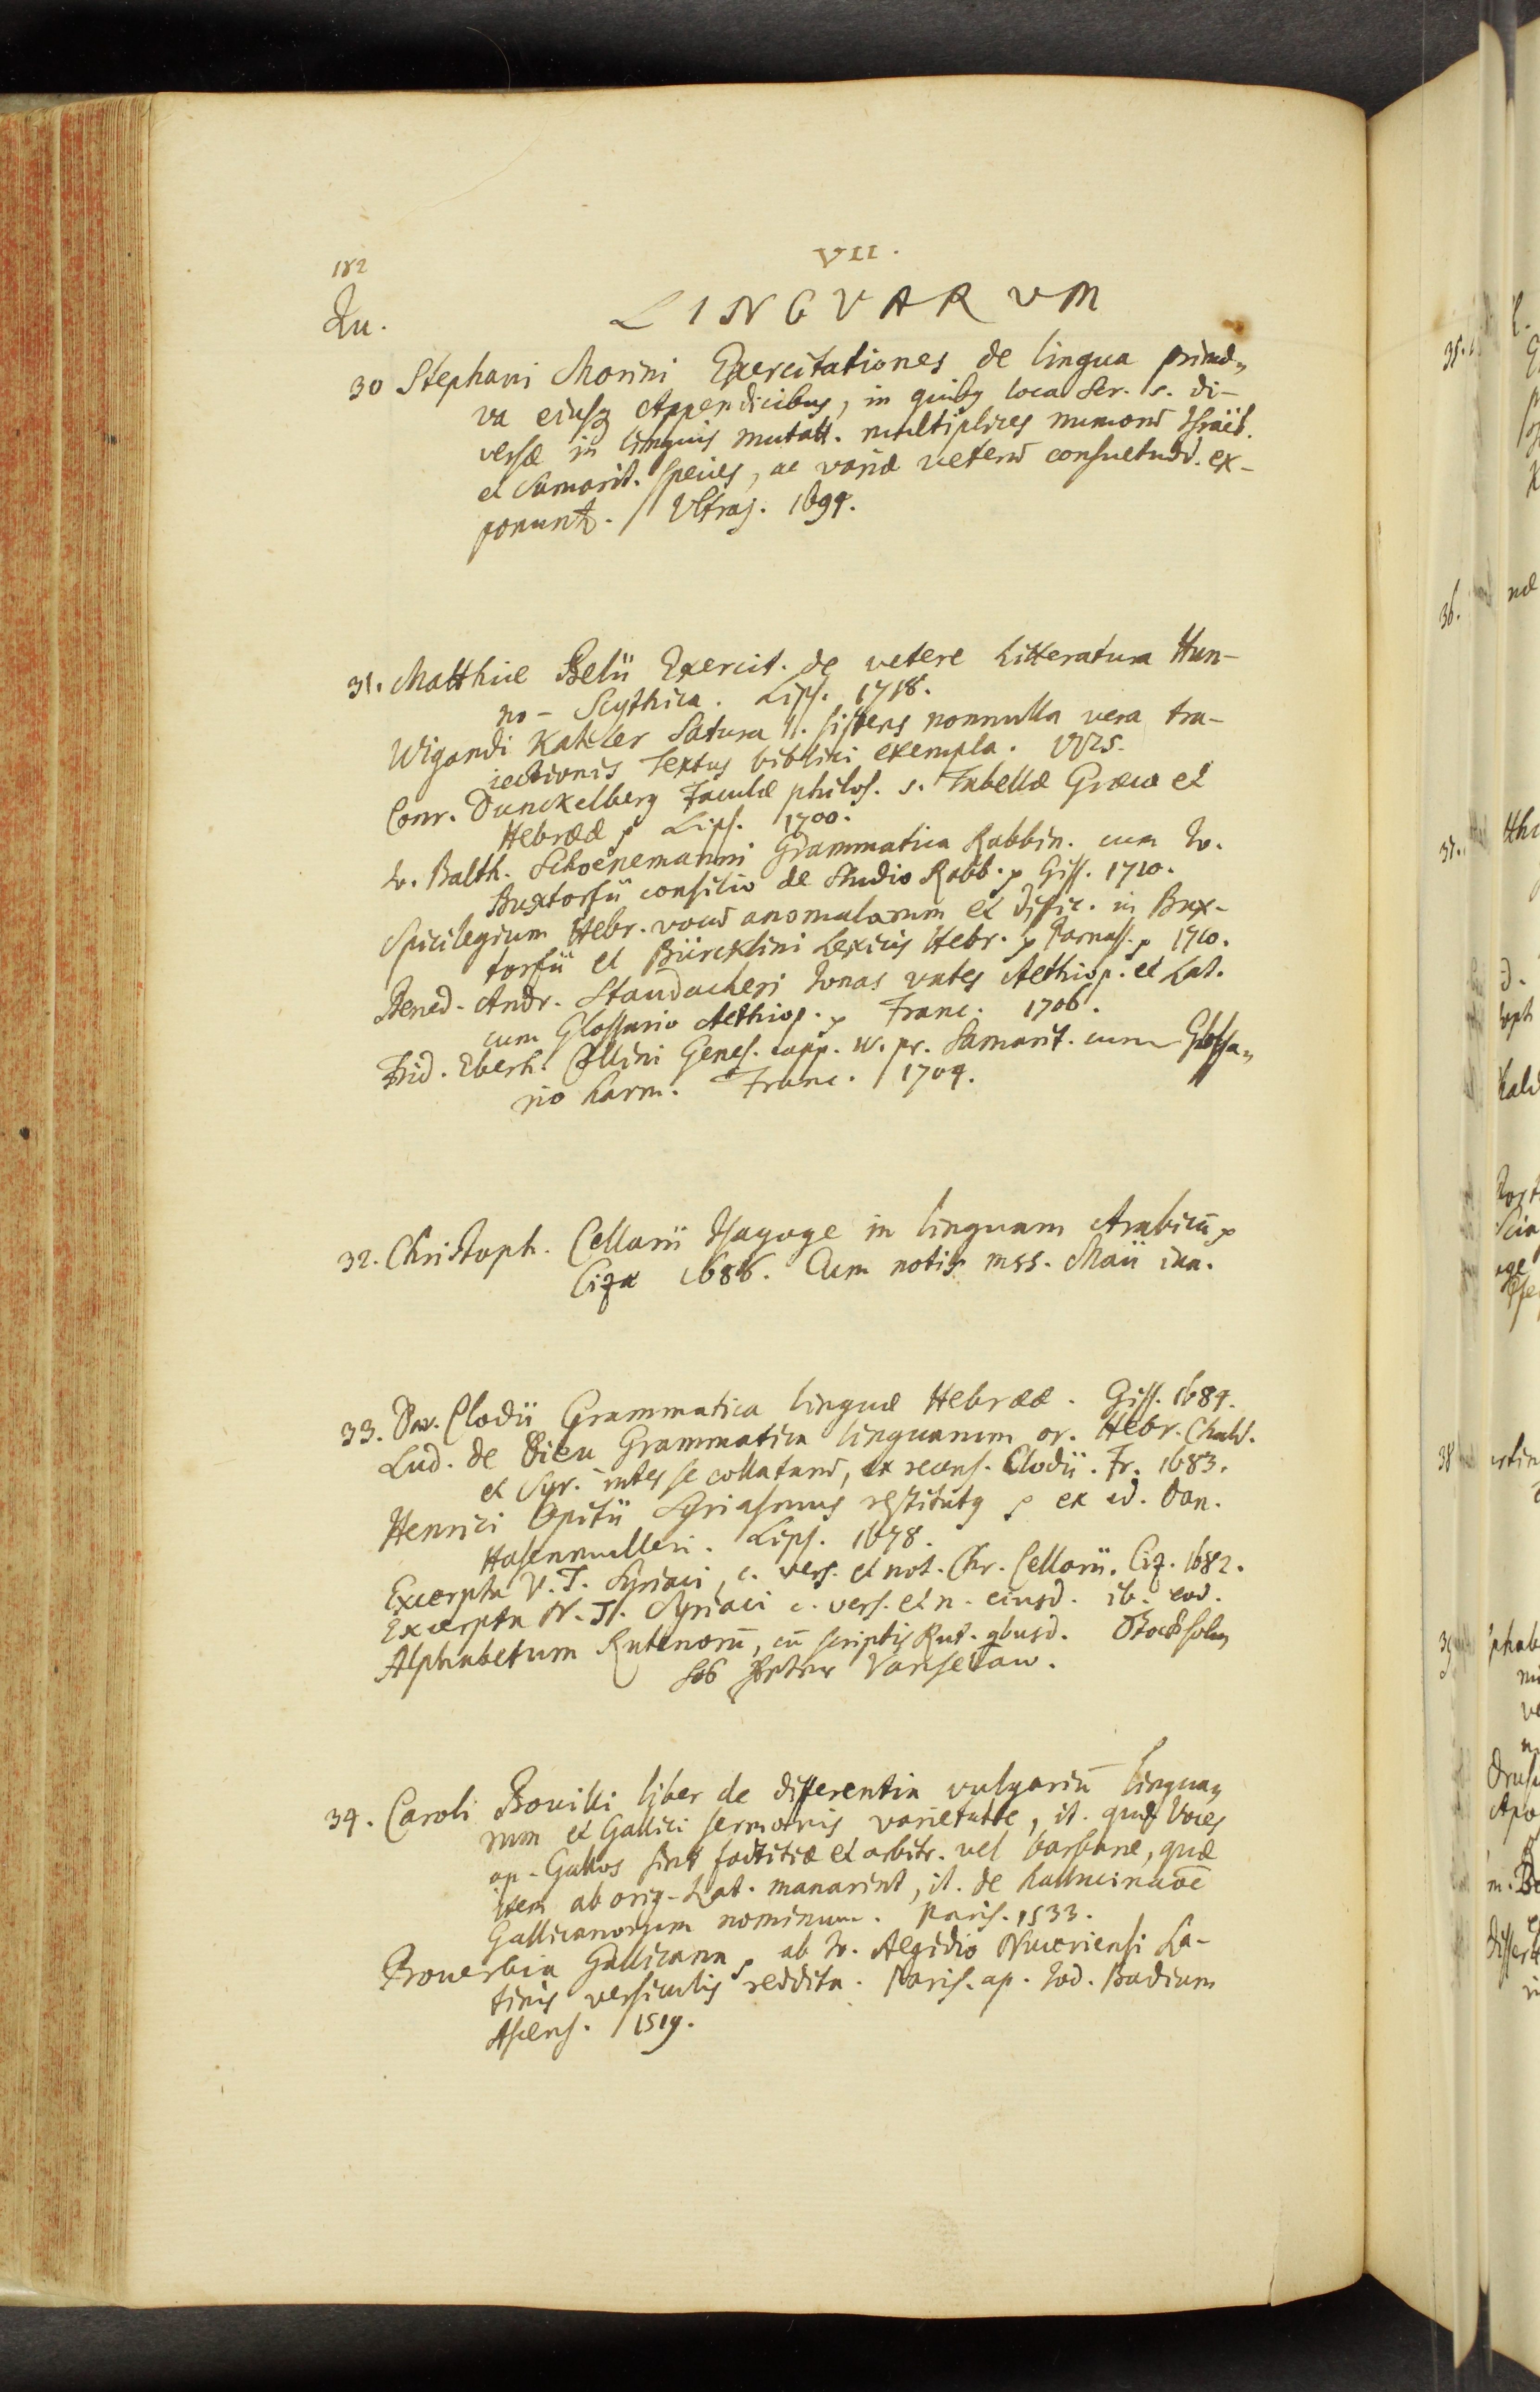 182
VII.
Qu.
LINGVARUM
30 Stephani Morini Exercitationes de lingua primæ„
va eiusq Appendicibus, in quibg loca Scr. s. di-
versæ in linguis mutatt. multiplices numorū Israel.
et Samarit. species, ac variæ veterū consuetudd. ex-
ponunt. Vltraj. 1694.
31. Matthiæ Belii Exercit. de vetere Litteratura Hun-
no-Scythica. Lips. 1718.
Wigandi Kahler Satura II. sistens nonnulla vera tra-
iectionis Textus biblici exempla. 1725.
Conr. Dunckelberg Faculæ philos. s. Tabellæ Græcæ et
Hebrææ p Lips. 1700.
Io. Balth. Schoenemanni Grammatica Rabbin. cum Io.
Buxtorfii consilio de Studio Rabb. p Giss. 1710.
Spicilegium Hebr. vocū anomalarum et dific. in Bux-
torfii et Bürcklini Lexicis Hebr. p Parnass. p 1710.
Bened. Andr. Staudacheri Ionas vates Aethiop. et Lat.
cum Glossario Aethiop. p Franc. 1706.
Frid. Eberh. Collini Genes. capp. IV. pr. Samarit. cum Glossa„
rio harm. Franc. 1704.
32. Christoph. Cellarii Isagoge in linguam Arabicā p
Cizæ 1686. Cum notis mss. Maii iun.
33. Dav. Clodii Grammatica linguæ Hebrææ. Giss. 1684.
Lud. de Dieu Grammatica linguarum or. Hebr. Chald.
et Syr. inter se collatarū, ex recens. Clodii. Fr. 1683.
Henrici Opitii Syriasmus restitutg p ex ed. Dan.
Hasenmulleri. Lips. 1678.
Excerpta V. T. Syriaci, c. vers. et not. Chr. Cellarii. Ciz. 1682.
Excerpta N. T. Syriaci c. vers. et n. eiusd. ib. eod.
Alphabetum Rutenorū, cū scriptis Rut. qbusd. Stockholm
Peter Vanselaw.
34. Caroli Bouilli liber de differentia vulgariū lingua„
rum et Gallici sermonis varietate, it. quæ Voces
ap. Gallos sint factitiæ et arbitr. vel barbaræ, quæ
item ab orig. Lat. manarint, it. de hallucinatōe
Gallicanorum nominum. Paris. 1533.
Prouerbia Gallicana, ab Io. Aegidio Nuceriensi La-
tinis versiculis reddita. Paris. ap. Iod. Badium
Ascens. 1519.